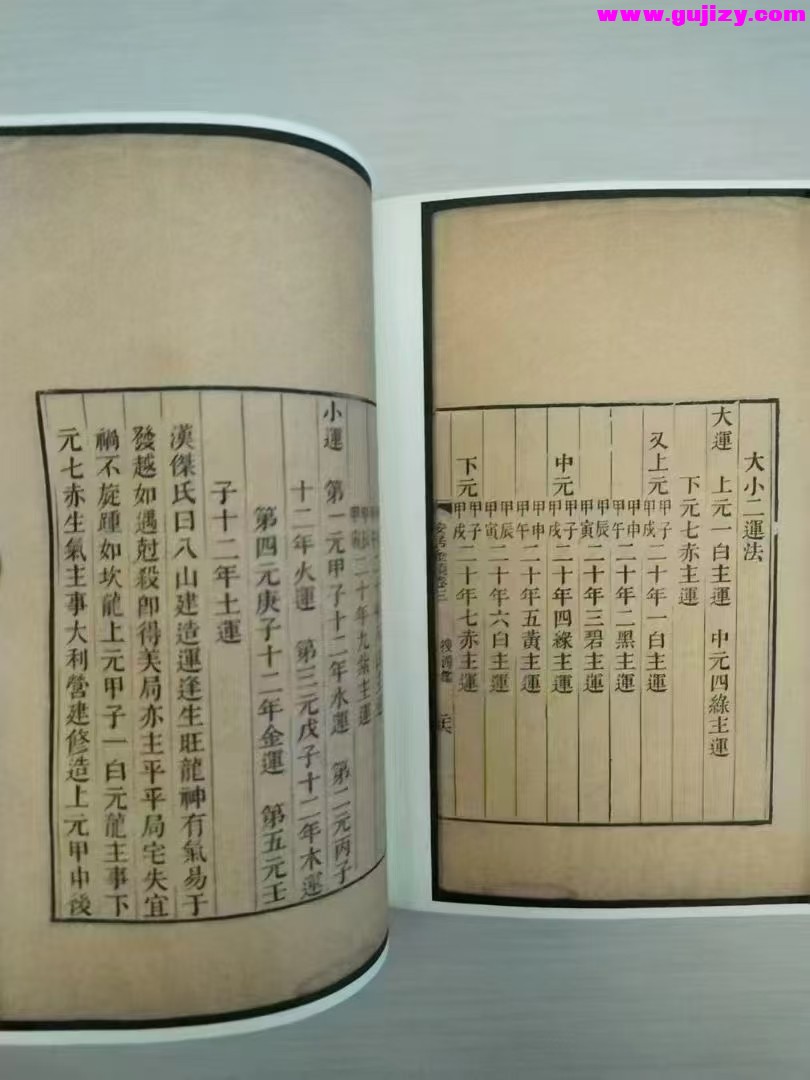 www.gujizy.com
大小二運法
大運 上元一白主運 中元四綠主運
下元七赤主運
又上元甲子甲戌二十年一白主運
甲申甲午二十年二黑主運
甲辰甲寅二十年三碧主運
中元甲子甲戌二十年四綠主運
甲申甲午二十年五黃主運
甲辰甲寅二十年六白主運
下元甲子甲戌二十年七赤主運
卷三
甲辰甲寅二十年九紫主運
小運 第一元甲子十二年水運 第二元丙子
十二年火運 第三元戊子十二年木運
第四元庚子十二年金運 第五元壬
子十二年土運
漢傑氏曰八山建造運逢生旺龍神有氣易于
發越如遇尅殺卽得美局亦主平平局宅失宜
禍不旋踵如坎龍上元甲子一白元龍主事下
元七赤生氣主事大利營建修造上元甲申後